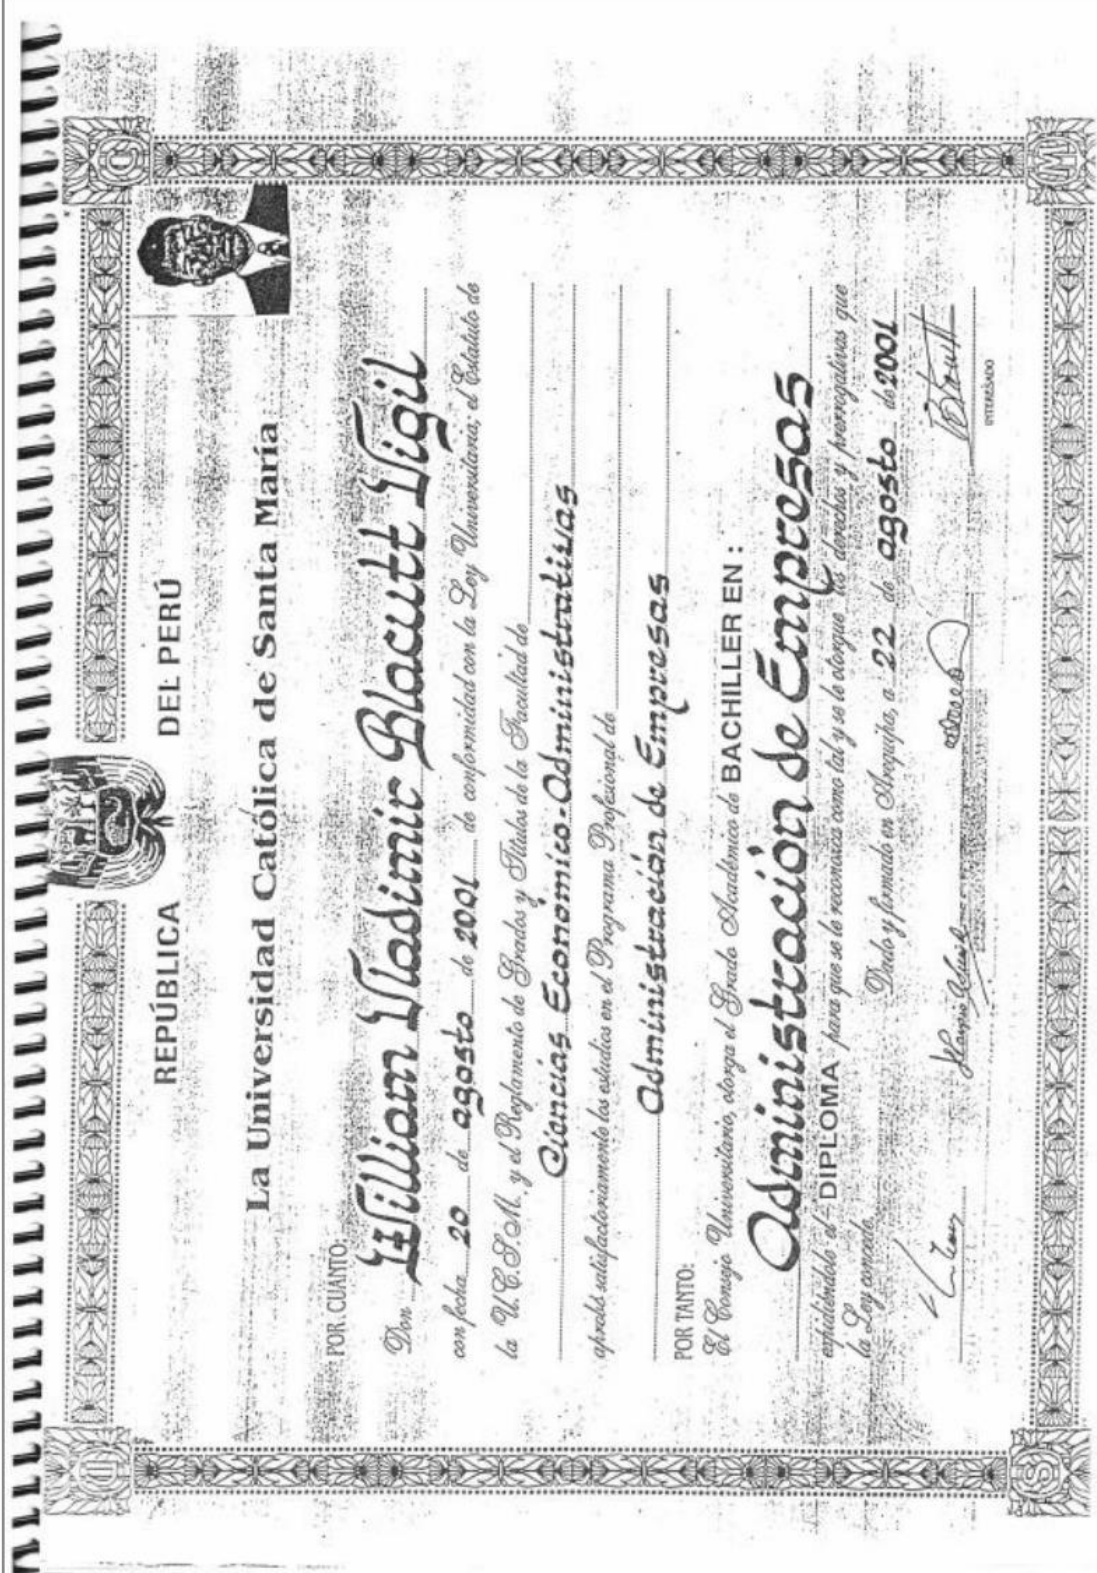 REPÚBLICA DEL PERÚ
La Universidad Católica de Santa María
POR CUANTO:
Don Willian Vladimir Blacutt Vigil
con fecha 20 de agosto de 2001 de conformidad con la Ley Universitaria, el Estatuto de
la U.C.S.M. y el Reglamento de Grados y Títulos de la Facultad de
Ciencias Económico-Administrativas
aprobó satisfactoriamente los estudios en el Programa Profesional de
Administración de Empresas
POR TANTO:
El Consejo Universitario, otorga el Grado Académico de BACHILLER EN:
Administración de Empresas
expidiéndole el DIPLOMA para que se le reconozca como tal y se le otorgue los derechos y prerrogativas que
la Ley concede.
Dado y firmado en Arequipa, a 22 de agosto de 2001
INTERESADO